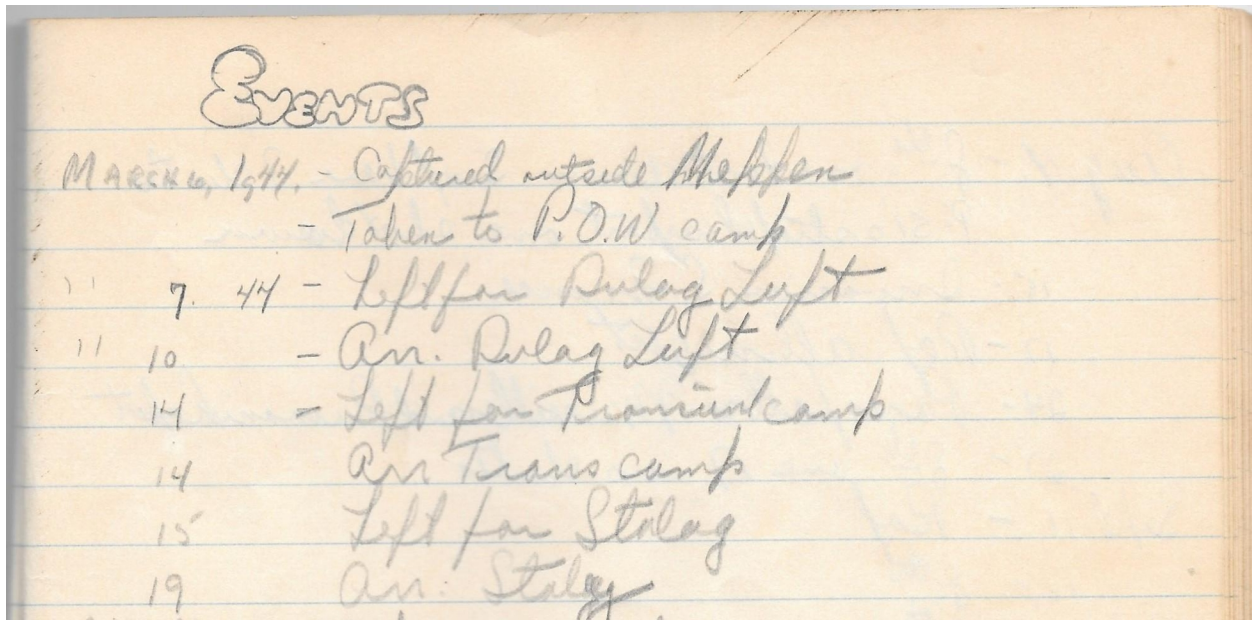 EVENTS
MARCH 6, 1944. - Captured outside Meppen
- Taken to P.O.W camp
" 7. 44 - Left for Dulag Luft
" 10 - Arr. Dulag Luft
14 - Left for camp
14 Arr Trans camp
15 Left for Stalag
19 Arr. Stalag